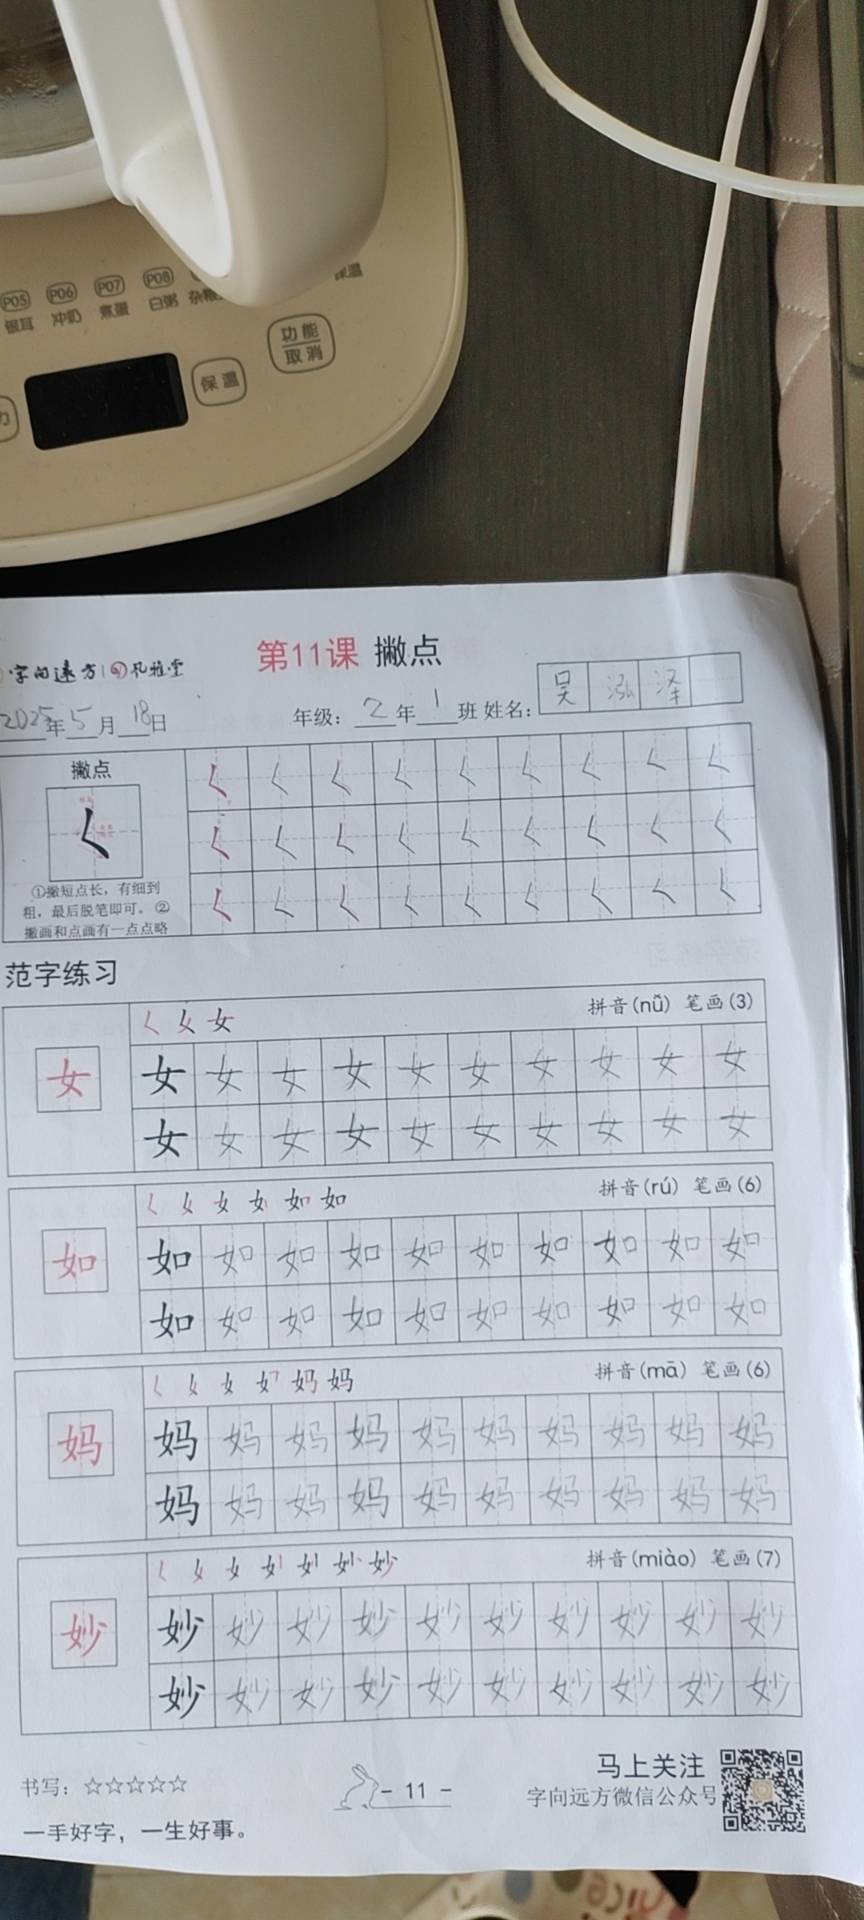 P05 P06 P07 P08
银耳 冲奶 煮蛋 白粥 杂粮 保温
功能
取消
保温
力
字向远方 凡雅堂
第11课 撇点
2025年5月18日 年级：2年1班 姓名：吴泓泽
撇点
①撇短点长，有细到
粗，最后脱笔即可。②
撇画和点画有一点点略
范字练习
く 女 女 拼音(nǚ) 笔画(3)
女 女 女 女 女 女 女 女 女 女 女
女 女 女 女 女 女 女 女 女 女
拼音(rú) 笔画(6)
如 如 如 如 如 如 如 如 如 如 如
如 如 如 如 如 如 如 如 如 如
拼音(mā) 笔画(6)
妈 妈 妈 妈 妈 妈 妈 妈 妈 妈 妈
妈 妈 妈 妈 妈 妈 妈 妈 妈 妈
拼音(miào) 笔画(7)
妙 妙 妙 妙 妙 妙 妙 妙 妙 妙 妙
妙 妙 妙 妙 妙 妙 妙 妙 妙 妙
书写：☆☆☆☆☆ - 11 - 马上关注
字向远方微信公众号
一手好字，一生好事。